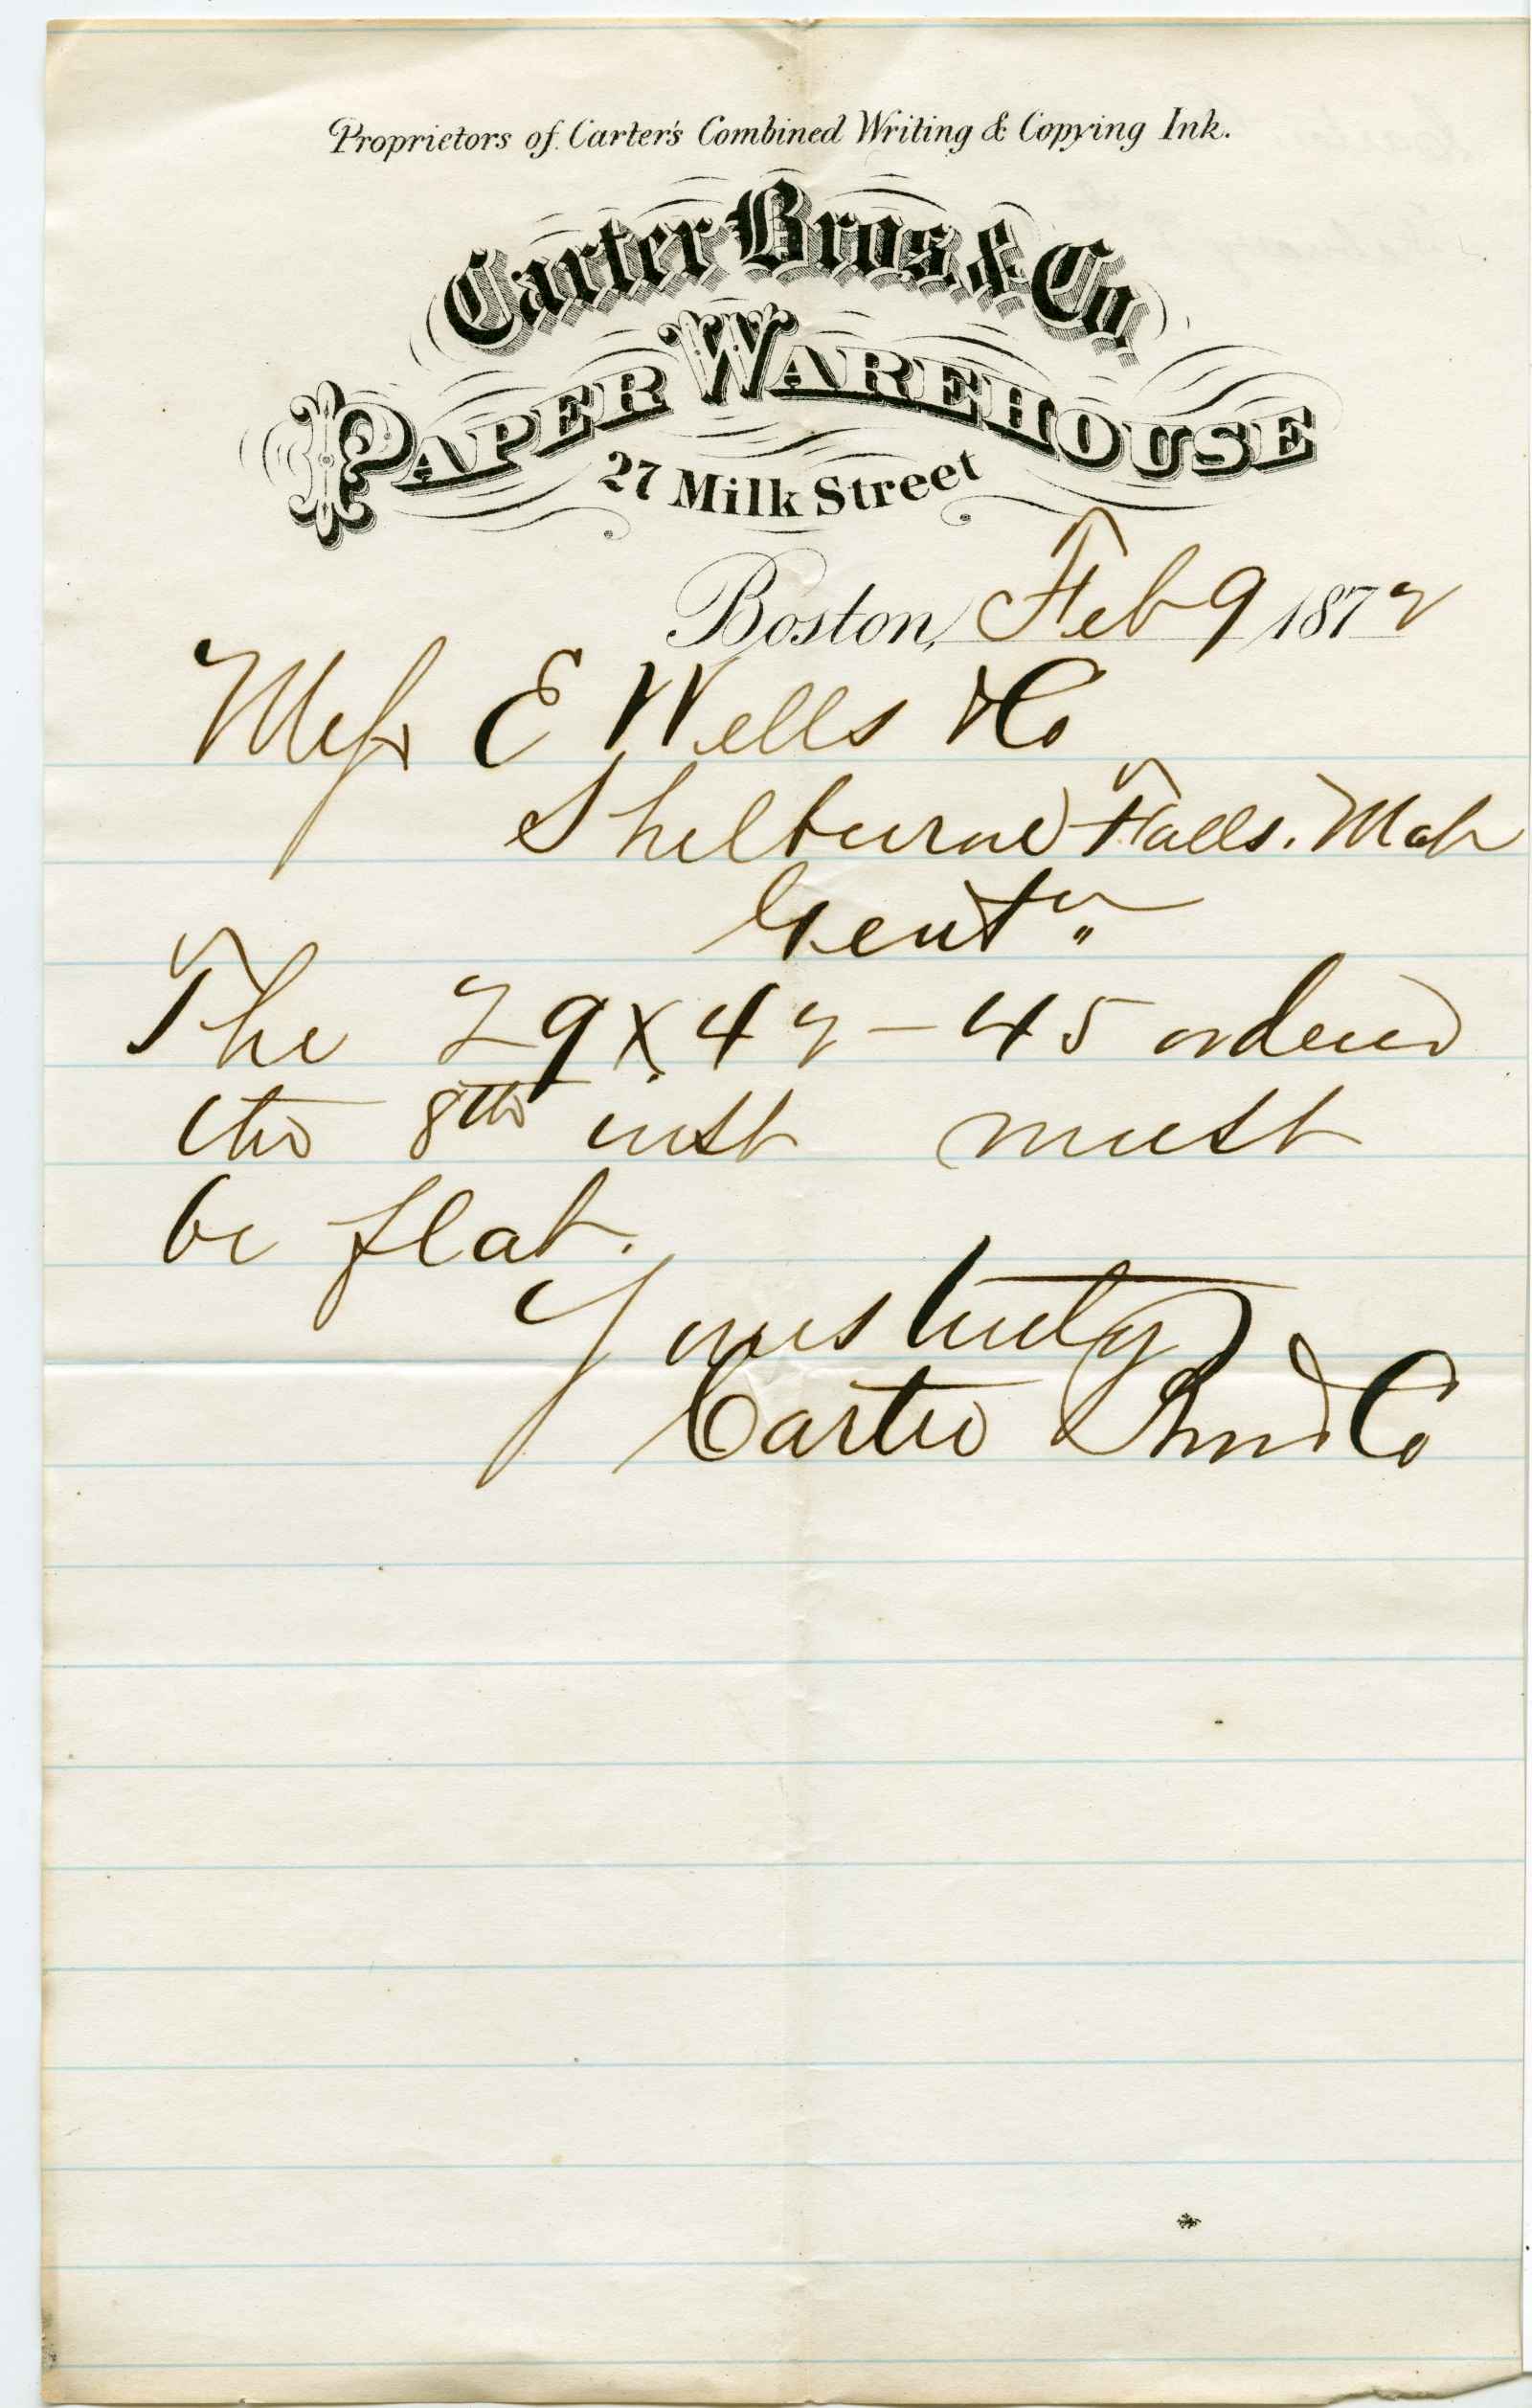 Proprietors of Carter's Combined Writing & Copying Ink.
Carter Bros. & Co.
PAPER WAREHOUSE
27 Milk Street
Boston, Feb 9 1872
Mess E Wells & Co
Shelburne Falls. Mass
Gentn
The 29 x 42 - 45 ordered
the 8th inst must
be flat.
Yours truly
Carter Bros & Co